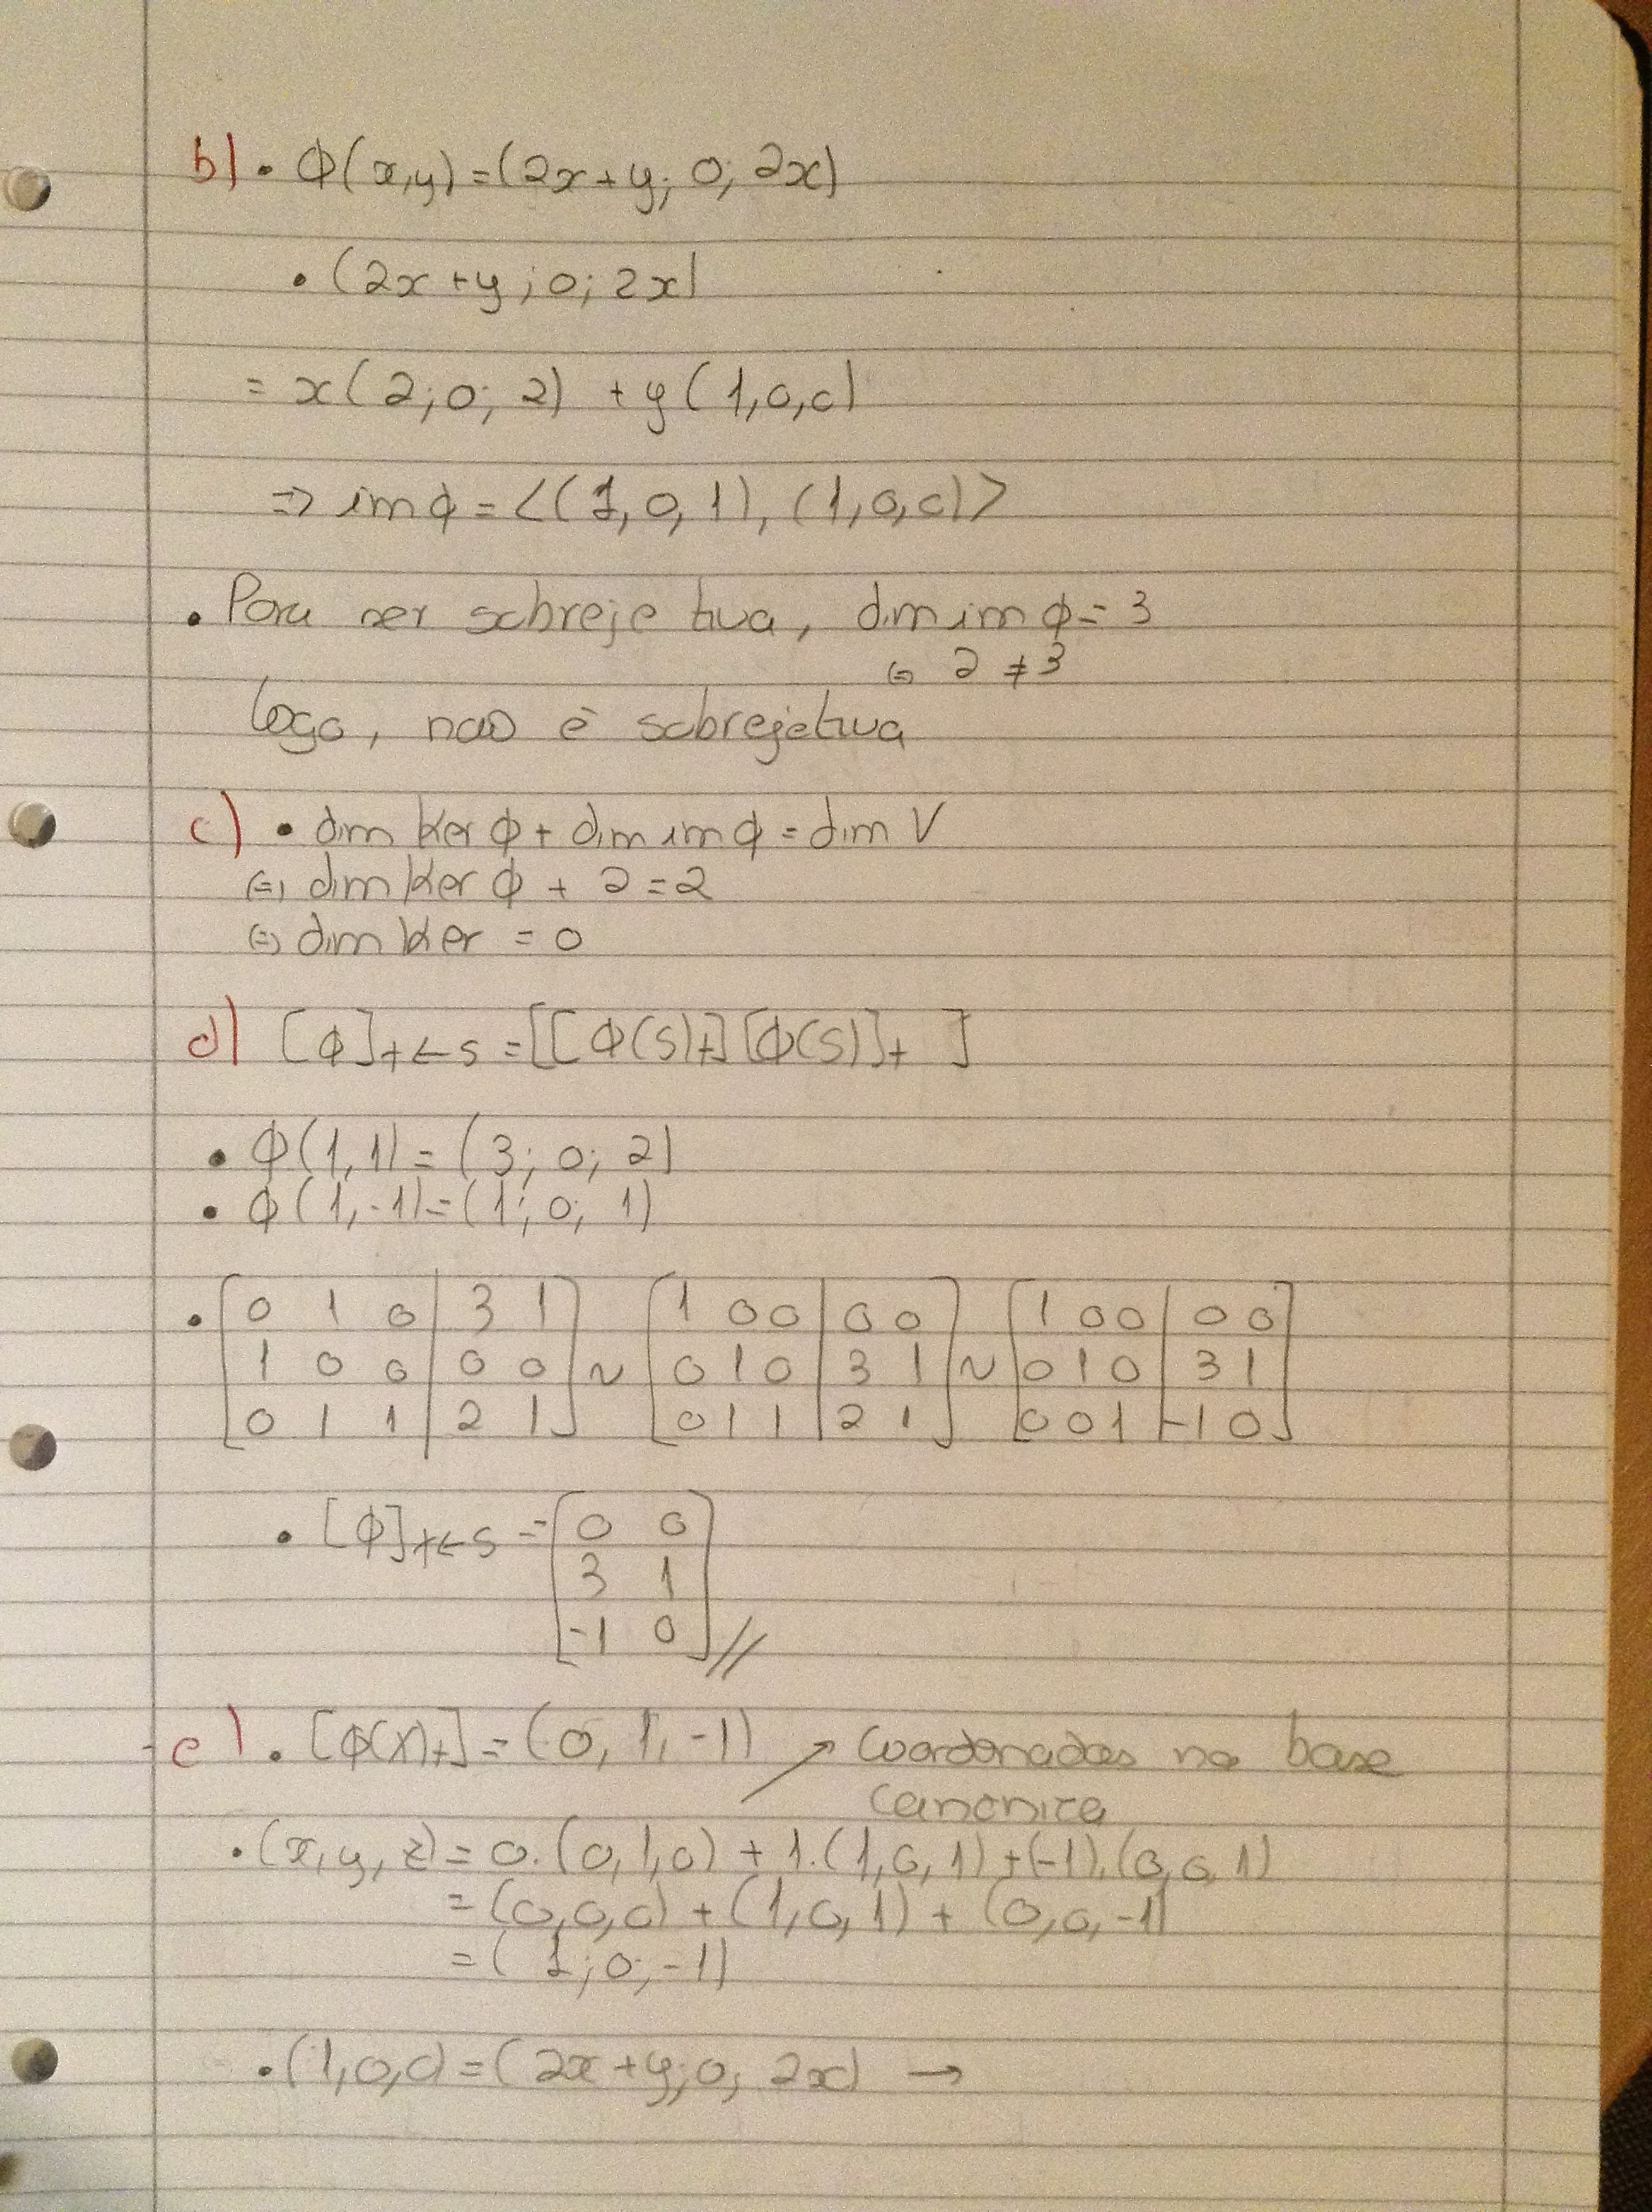 b) • Φ(x,y) = (2x+y; 0; 2x)
• (2x+y; 0; 2x)
= x(2; 0; 2) + y(1,0,0)
⇒ im Φ = <(1,0,1), (1,0,0)>
• Para ser sobrejetiva, dim im Φ = 3
⇔ 2 ≠ 3
logo, nao é sobrejetiva
c) • dim Ker Φ + dim im Φ = dim V
⇔ dim Ker Φ + 2 = 2
⇔ dim Ker = 0
d) [Φ]T←S = [[Φ(S)T] [Φ(S)]T ]
• Φ(1,1) = (3; 0; 2)
• Φ(1,-1) = (1; 0; 1)
• [0 1 0 | 3 1] ~ [1 0 0 | 0 0] ~ [1 0 0 | 0 0]
[1 0 0 | 0 0] [0 1 0 | 3 1] [0 1 0 | 3 1]
[0 1 1 | 2 1] [0 1 1 | 2 1] [0 0 1 | -1 0]
• [Φ]T←S = [0 0
3 1
-1 0] //
e) • [Φ(X)T] = (0, 1, -1) ↗ Coordenadas na base
canonica
• (x, y, z) = 0.(0,1,0) + 1.(1,0,1) + (-1).(0,0,1)
= (0,0,0) + (1,0,1) + (0,0,-1)
= (1; 0; -1)
• (1,0,0) = (2x+y; 0; 2x) →